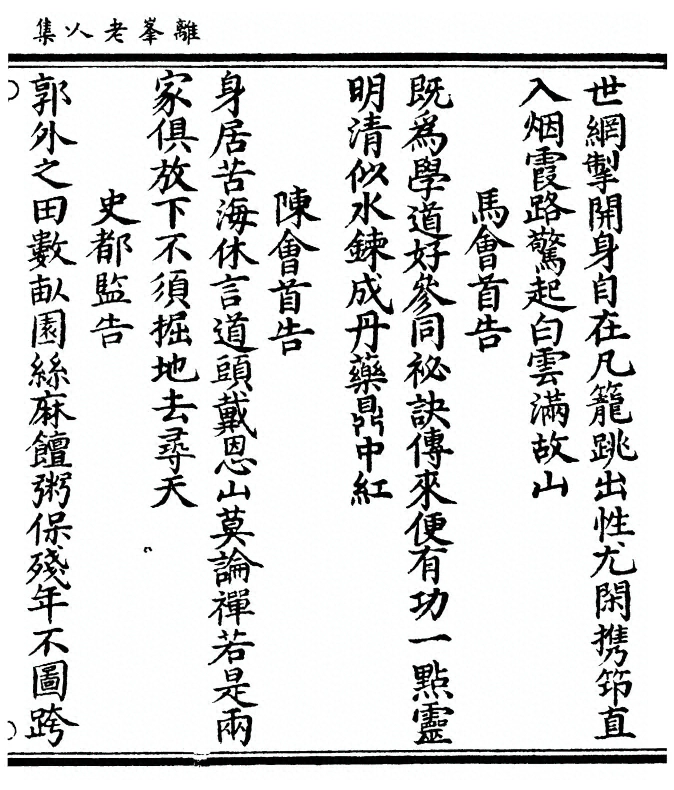 離峯老人集
世網掣開身自在凡籠跳出性尤閑携笻直
入烟霞路驚起白雲滿故山
馬會首告
既為學道好參同祕訣傳來便有功一點靈
明清似水鍊成丹藥鼎中紅
陳會首告
身居苦海休言道頭戴恩山莫論禪若是兩
家俱放下不須掘地去尋天
史都監告
郭外之田數畝園絲麻饘粥保殘年不圖跨